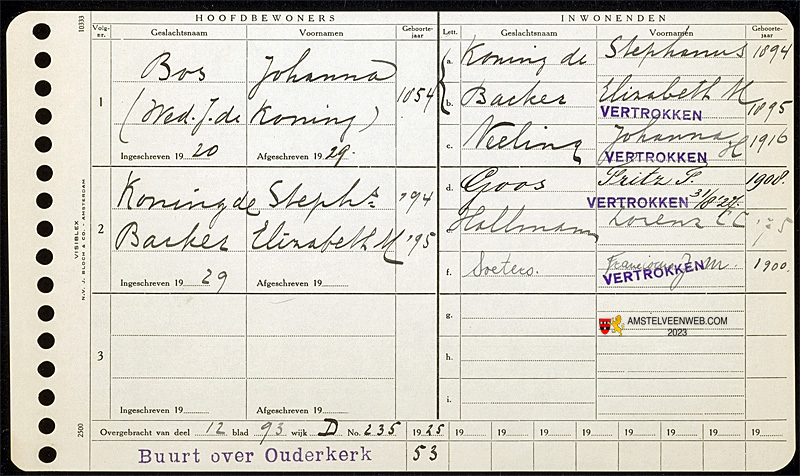 HOOFDBEWONERS
Volg-nr. Geslachtsnaam Voornamen Geboorte-jaar
1 Bos Johanna 1854
(Wed. J. de Koning)
Ingeschreven 1920 Afgeschreven 1929.
2 Koning de Steph.s '94
Backer Elizabeth M '95
Ingeschreven 1929 Afgeschreven 19
3
Ingeschreven 19 Afgeschreven 19
INWONENDEN
Lett. Geslachtsnaam Voornamen Geboorte-jaar
a. Koning de Stephanus 1894
b. Backer Elizabeth M 1895
VERTROKKEN
c. Neeling Johanna H 1916
VERTROKKEN
d. Goos Fritz P. 1908.
VERTROKKEN
e. Hallmann Lorenz C C
f. Soeters. J. M. 1900.
VERTROKKEN
g.
AMSTELVEENWEB.COM
2023
h.
i.
Overgebracht van deel 12 blad 93 wijk D No. 235 1925 19 19 19 19 19 19 19 19
Buurt over Ouderkerk 53
10333
VISIBLEX
N.V. J. BLOCH & CO. AMSTERDAM
2500